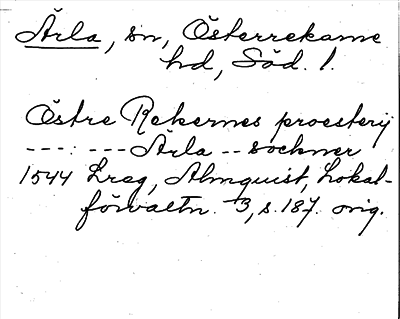 Ärla, sn, Österrekarne
hd, Söd. l.
Östre Rekernes proesterij
---:---Ärla--sockner
1544 Lreg, Almquist, Lokal-
förvaltn. 3, s. 187. orig.